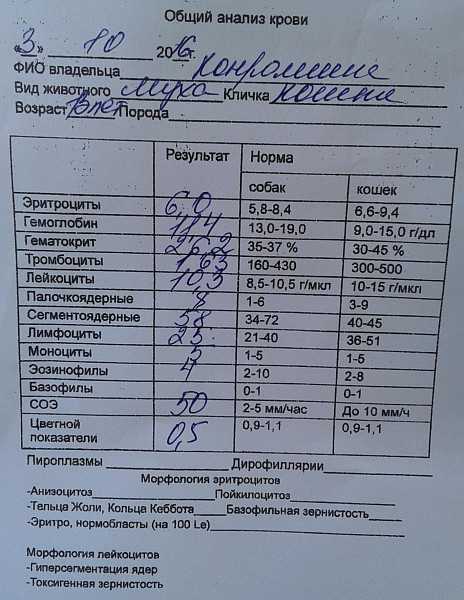 Общий анализ крови
«3» 10 2016г.
ФИО владельца
Вид животного Муха Кличка кошка
Возраст 13 лет Порода
Результат Норма
собак кошек
Эритроциты 6,0 5,8-8,4 6,6-9,4
Гемоглобин 114 13,0-19,0 9,0-15,0 г/дл
Гематокрит 26,2 35-37 % 30-45 %
Тромбоциты 163 160-430 300-500
Лейкоциты 10,3 8,5-10,5 г/мкл 10-15 г/мкл
Палочкоядерные 1-6 3-9
Сегментоядерные 58 34-72 40-45
Лимфоциты 25 21-40 36-51
Моноциты 5 1-5 1-5
Эозинофилы 4 2-10 2-8
Базофилы 0-1 0-1
СОЭ 50 2-5 мм/час До 10 мм/ч
Цветной показатели 0,5 0,9-1,1 0,9-1,1
Пироплазмы Дирофиллярии
Морфология эритроцитов
-Анизоцитоз Пойкилоцитоз
-Тельца Жоли, Кольца Кеббота Базофильная зернистость
-Эритро, нормобласты (на 100 Le)
Морфология лейкоцитов
-Гиперсегментация ядер
-Токсигенная зернистость